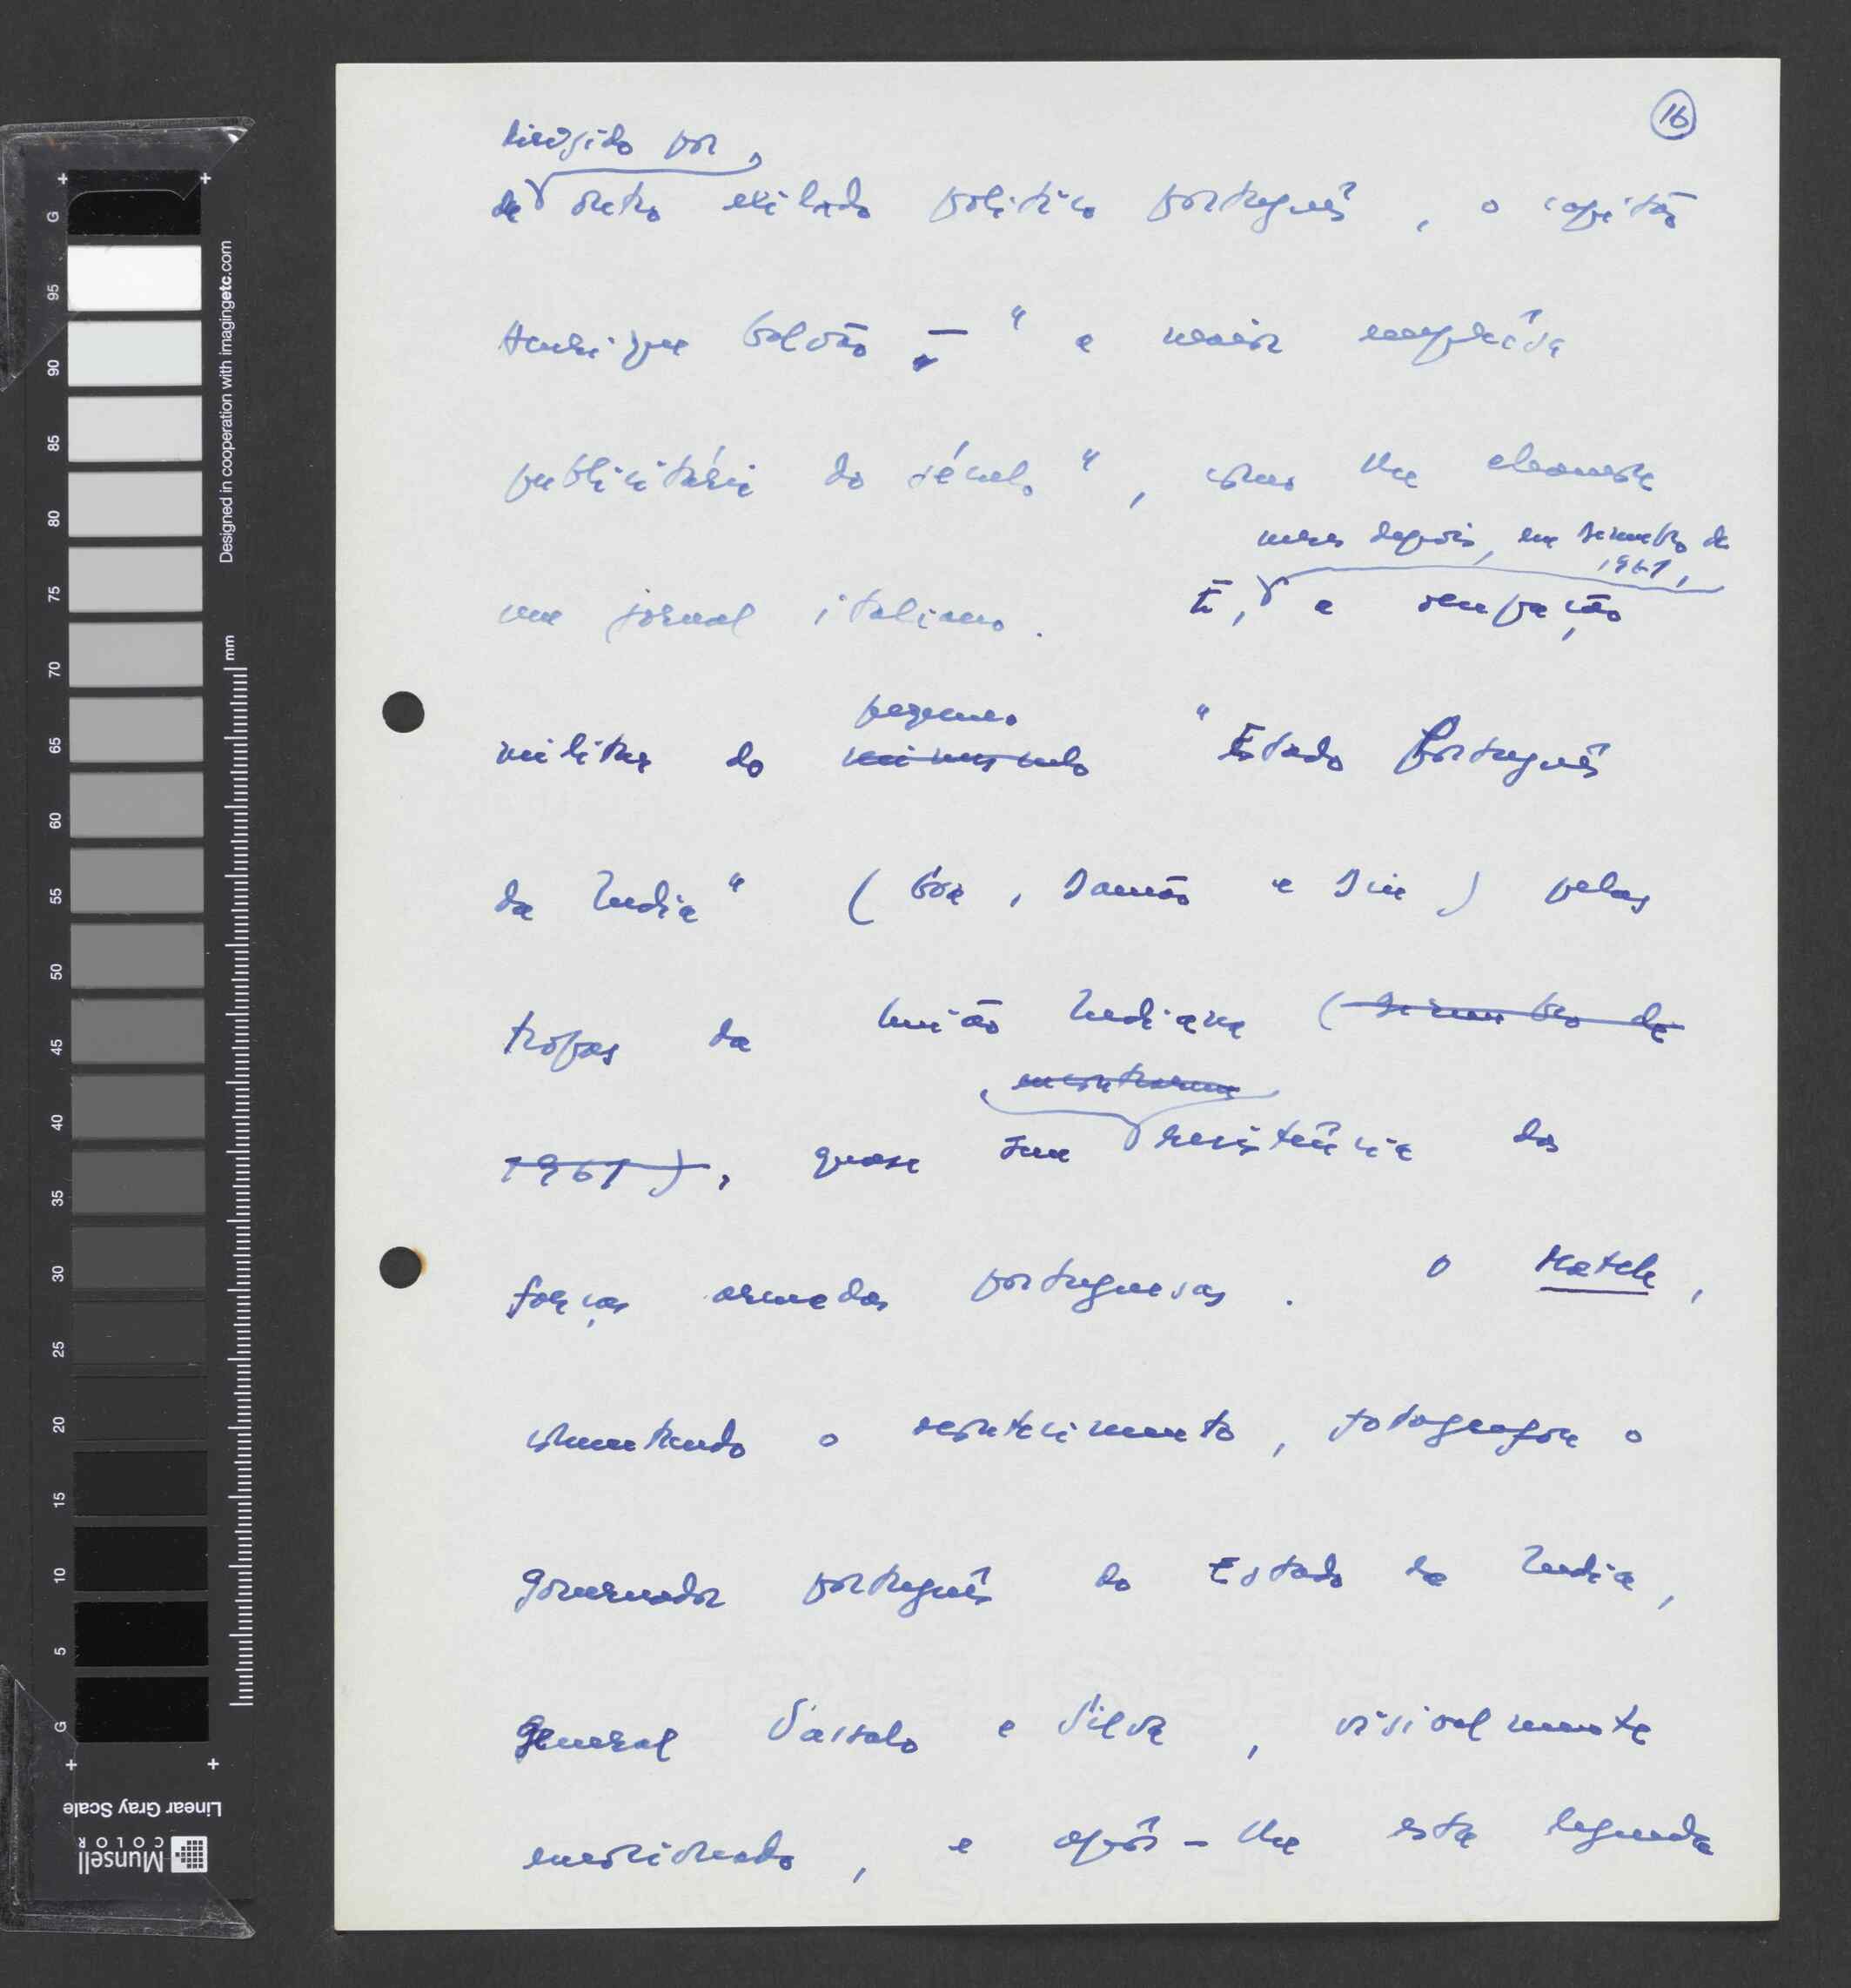 16
dirigido por
de outro exilado político português, o capitão
Henrique Galvão — "a maior empresa
publicitária do século", como lhe chamou
um jornal italiano. E, a ocupação
meses depois, em Dezembro de
1961,
militar do minusculo "Estado Português
pequeno
da India" (Goa, Damão e Diu) pelas
tropas da União Indiana (Dezembro de
1961), quase sem resistência das
encontrarem
forças armadas portuguesas. O Match,
comentando o acontecimento, fotografa o
governador português do Estado da India,
general Vassalo e Silva, visivelmente
emocionado, e apôs-lhe esta legenda
G
95
90
85
80
75
70
65
60
55
50
45
40
35
30
25
20
15
10
5
G
Designed in cooperation with imagingetc.com
mm
Linear Gray Scale
Munsell
COLOR